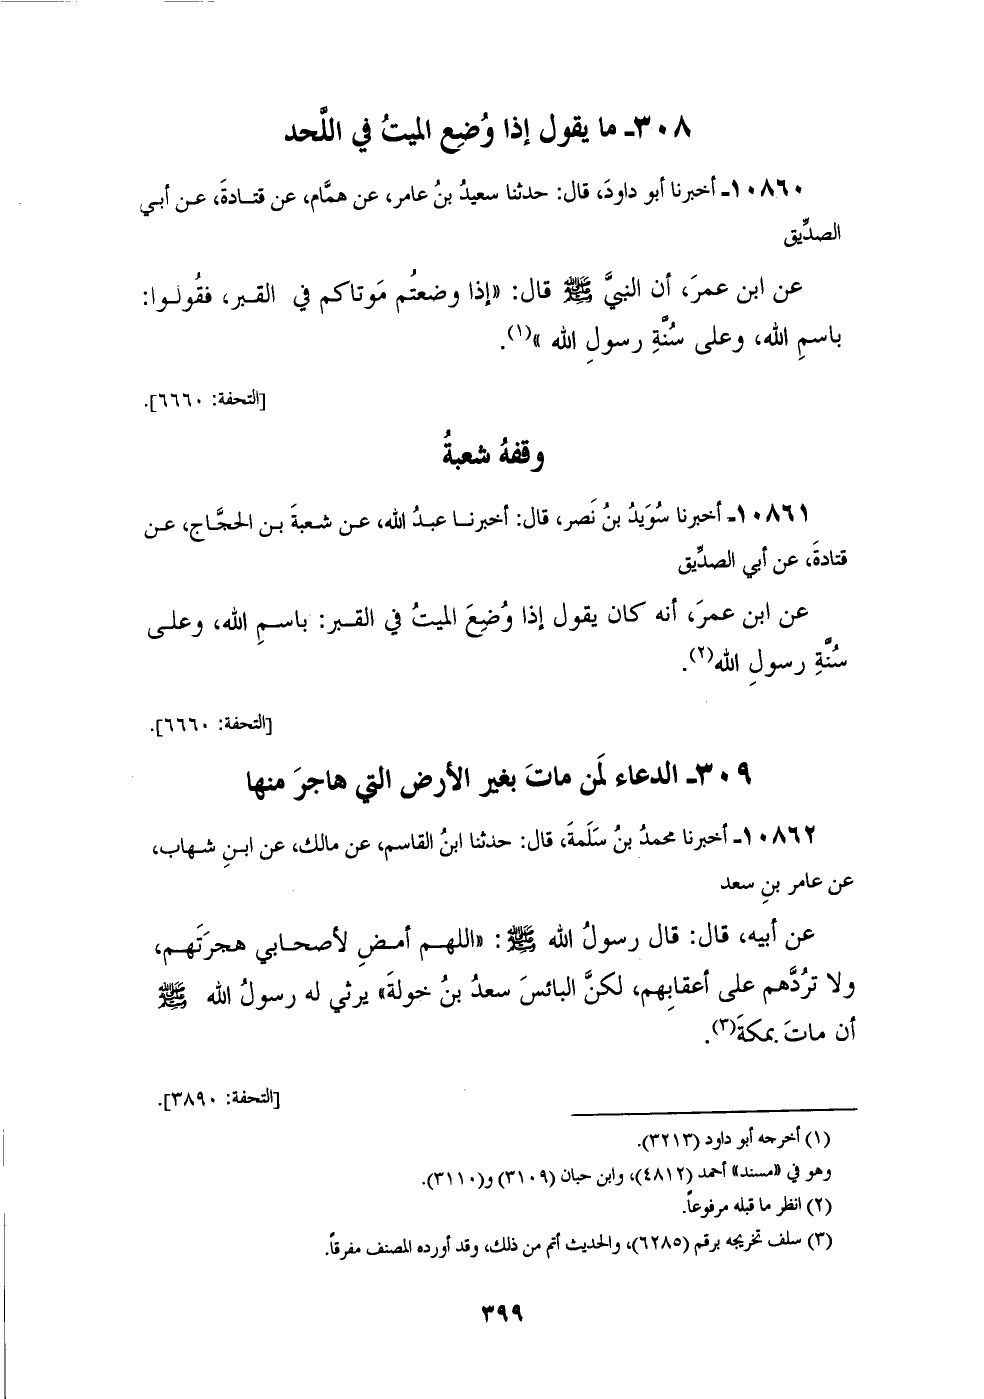 ٣٠٨ـ ما يقول إذا وُضِع الميتُ في اللَّحد
١٠٨٦٠ـ أخبرنا أبو داودَ، قال: حدثنا سعيدُ بنُ عامر، عن همَّام، عن قتادةَ، عن أبي
الصدِّيق
عن ابن عمرَ، أن النبيَّ ﷺ قال: «إذا وضعتُم مَوتاكم في القبر، فقُولوا:
باسمِ الله، وعلى سُنَّةِ رسولِ الله »(١).
[التحفة: ٦٦٦٠].
وقفهُ شعبةُ
١٠٨٦١ـ أخبرنا سُوَيدُ بنُ نَصر، قال: أخبرنا عبدُ الله، عن شعبةَ بن الحجَّاج، عن
قتادةَ، عن أبي الصدِّيق
عن ابن عمرَ، أنه كان يقول إذا وُضِعَ الميتُ في القبر: باسمِ الله، وعلى
سُنَّةِ رسولِ الله(٢).
[التحفة: ٦٦٦٠].
٣٠٩ـ الدعاء لمَن ماتَ بغير الأرض التي هاجرَ منها
١٠٨٦٢ـ أخبرنا محمدُ بنُ سَلَمةَ، قال: حدثنا ابنُ القاسم، عن مالك، عن ابنِ شهاب،
عن عامر بنِ سعد
عن أبيه، قال: قال رسولُ الله ﷺ: «اللهم أمضِ لأصحابي هجرَتَهم،
ولا تردَّهم على أعقابِهم، لكنَّ البائسَ سعدُ بنُ خولةَ» يرثي له رسولُ الله ﷺ
أن ماتَ بمكةَ(٣).
[التحفة: ٣٨٩٠].
(١) أخرجه أبو داود (٣٢١٣).
وهو في «مسند» أحمد (٤٨١٢)، وابن حبان (٣١٠٩) و(٣١١٠).
(٢) انظر ما قبله مرفوعاً.
(٣) سلف تخريجه برقم (٦٢٨٥)، والحديث أتم من ذلك، وقد أورده المصنف مفرقاً.
٣٩٩